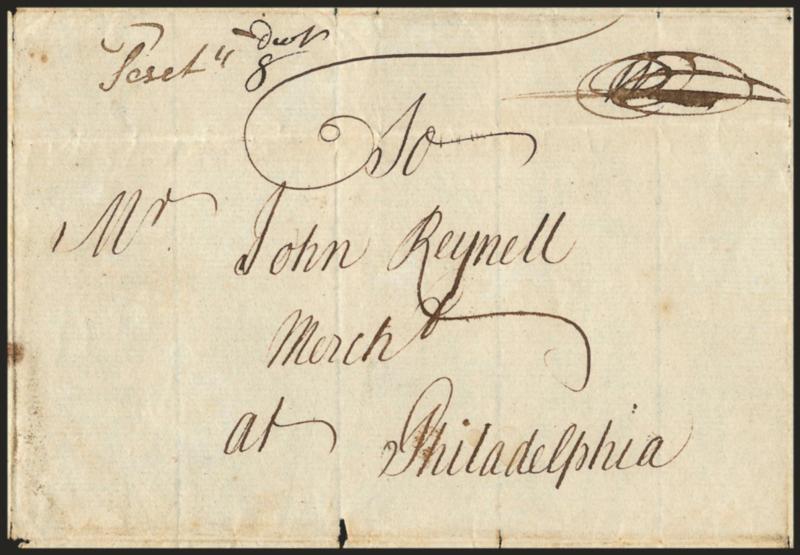 dwt
8
To
Mr. John Reynell
Mercht
at Philadelphia